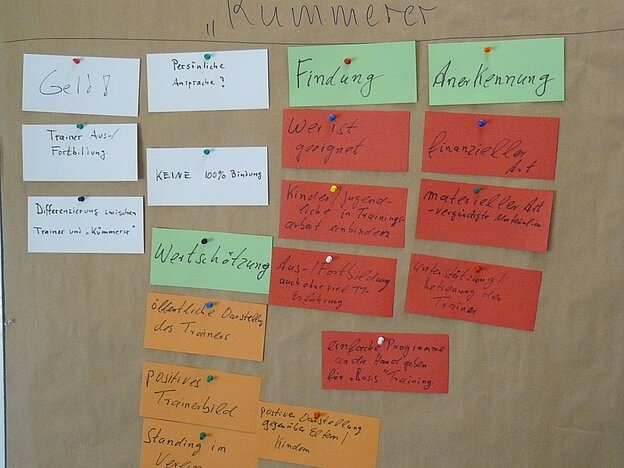 „Kümmerer
Geld!
Trainer Aus-/
Fortbildung
Differenzierung zwischen
Trainer und „Kümmerer"
Persönliche
Ansprache?
KEINE 100% Bindung
Wertschätzung
öffentliche Darstellung
des Trainers
positives
Trainerbild
Standing im
Verein
positive Darstellung
gegenüber Eltern/
Kindern
Findung
Wer ist
geeignet
Kinder/Jugend-
liche in Trainings-
arbeit einbinden
Aus-/Fortbildung
auch ohne viel TT-
Erfahrung
einfache Programme
an die Hand geben
für „Basis"Training
Anerkennung
finanzieller
Art
materieller Art
-vergünstigte Materialien
Unterstützung/
Betreuung des
Trainer